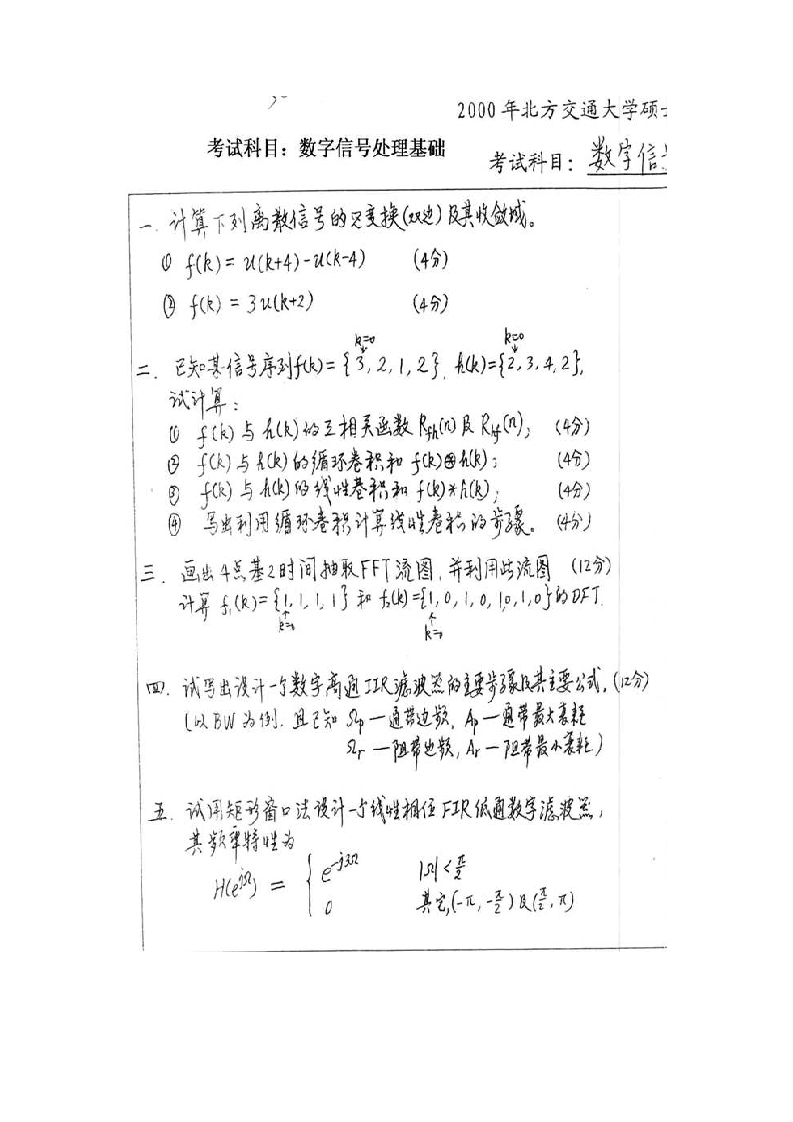 2000年北方交通大学硕士
考试科目：数字信号处理基础
考试科目：数字信
一. 计算下列离散信号的Z变换(双边)及其收敛域。
① f(k) = u(k+4)-u(k-4) (4分)
② f(k) = 3u(k+2) (4分)
k=0 k=0
二. 已知某信号序列f(k)={3,2,1,2}, h(k)={2,3,4,2},
试计算：
① f(k)与h(k)的互相关函数Rfh(n)及Rhf(n); (4分)
② f(k)与h(k)的循环卷积和 f(k)⊛h(k); (4分)
③ f(k)与h(k)的线性卷积和 f(k)*h(k); (4分)
④ 写出利用循环卷积计算线性卷积的步骤。 (4分)
三. 画出4点基2时间抽取FFT流图, 并利用此流图 (12分)
计算 f₁(k)={1,1,1,1} 和 f₂(k)={1,0,1,0,1,0,1,0}的DFT.
k=0 k=0
四. 试写出设计一个数字高通IIR滤波器的主要步骤及其主要公式, (12分)
(以BW为例. 且已知 Ωp—通带边频, Ap—通带最大衰耗
Ωr—阻带边频, Ar—阻带最小衰耗)
五. 试用矩形窗口法设计一个线性相位FIR低通数字滤波器,
其频率特性为
H(e^{jΩ}) = { e^{-j3Ω} |Ω|<π/2
0 其它,(-π, -π/2)及(π/2, π)